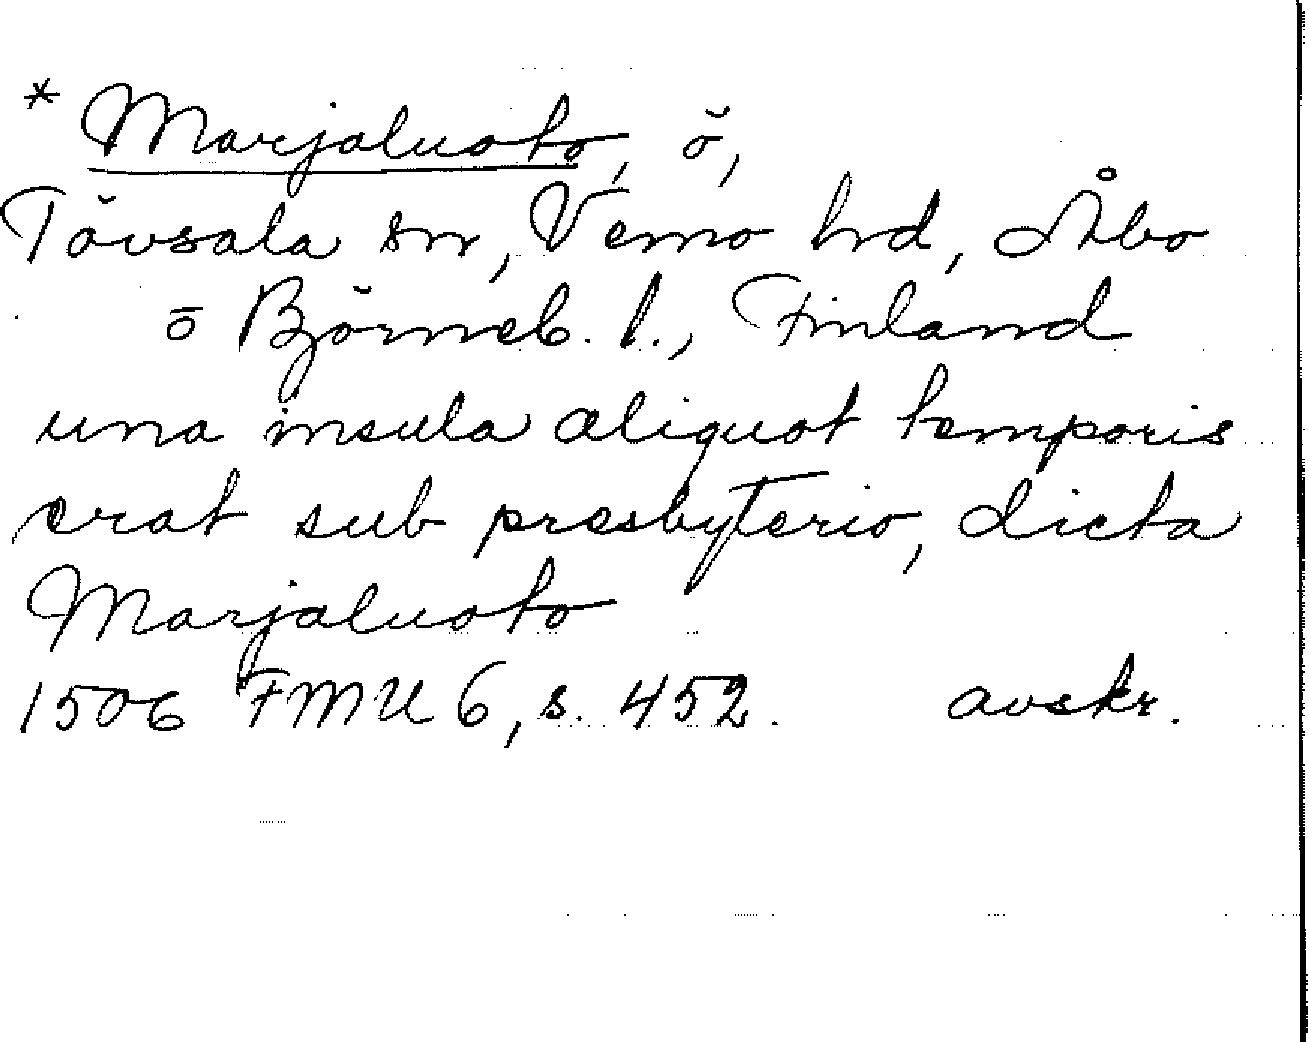 * Marjaluoto, ö,
Tövsala sn, Vemo hrd, Åbo
o Björneb. l., Finland
una insula aliquot temporis
erat sub presbyterio, dicta
Marjaluoto
1506 FMU 6, s. 452. avskr.